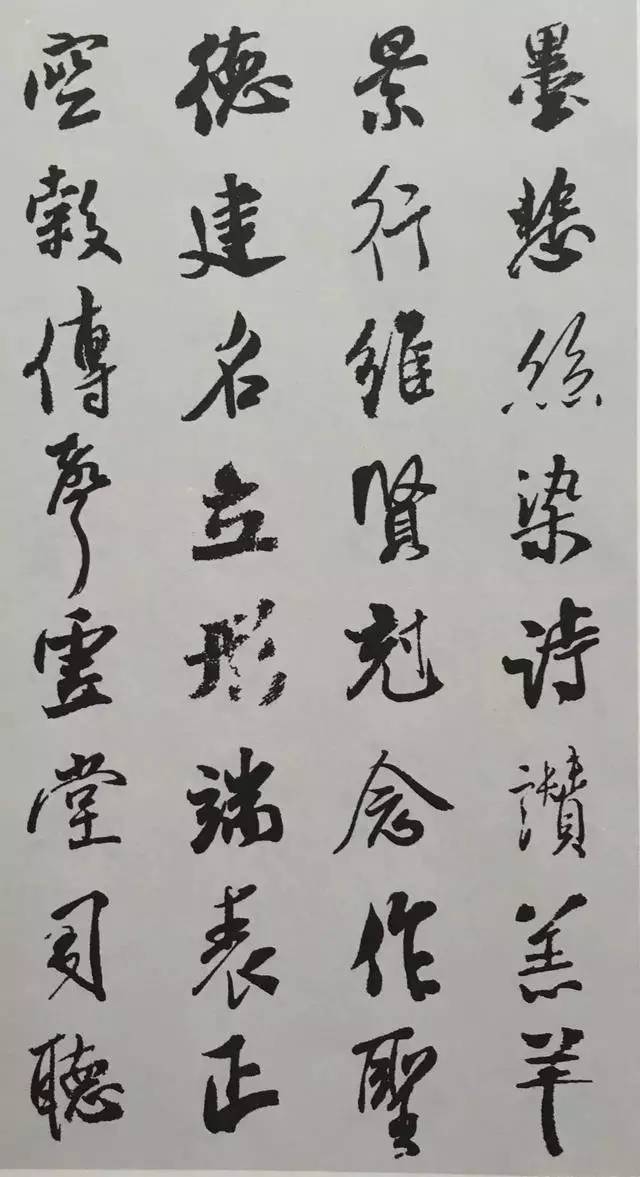 墨悲絲染詩讚羔羊
景行維賢尅念作聖
德建名立形端表正
空穀傳聲虛堂習聽